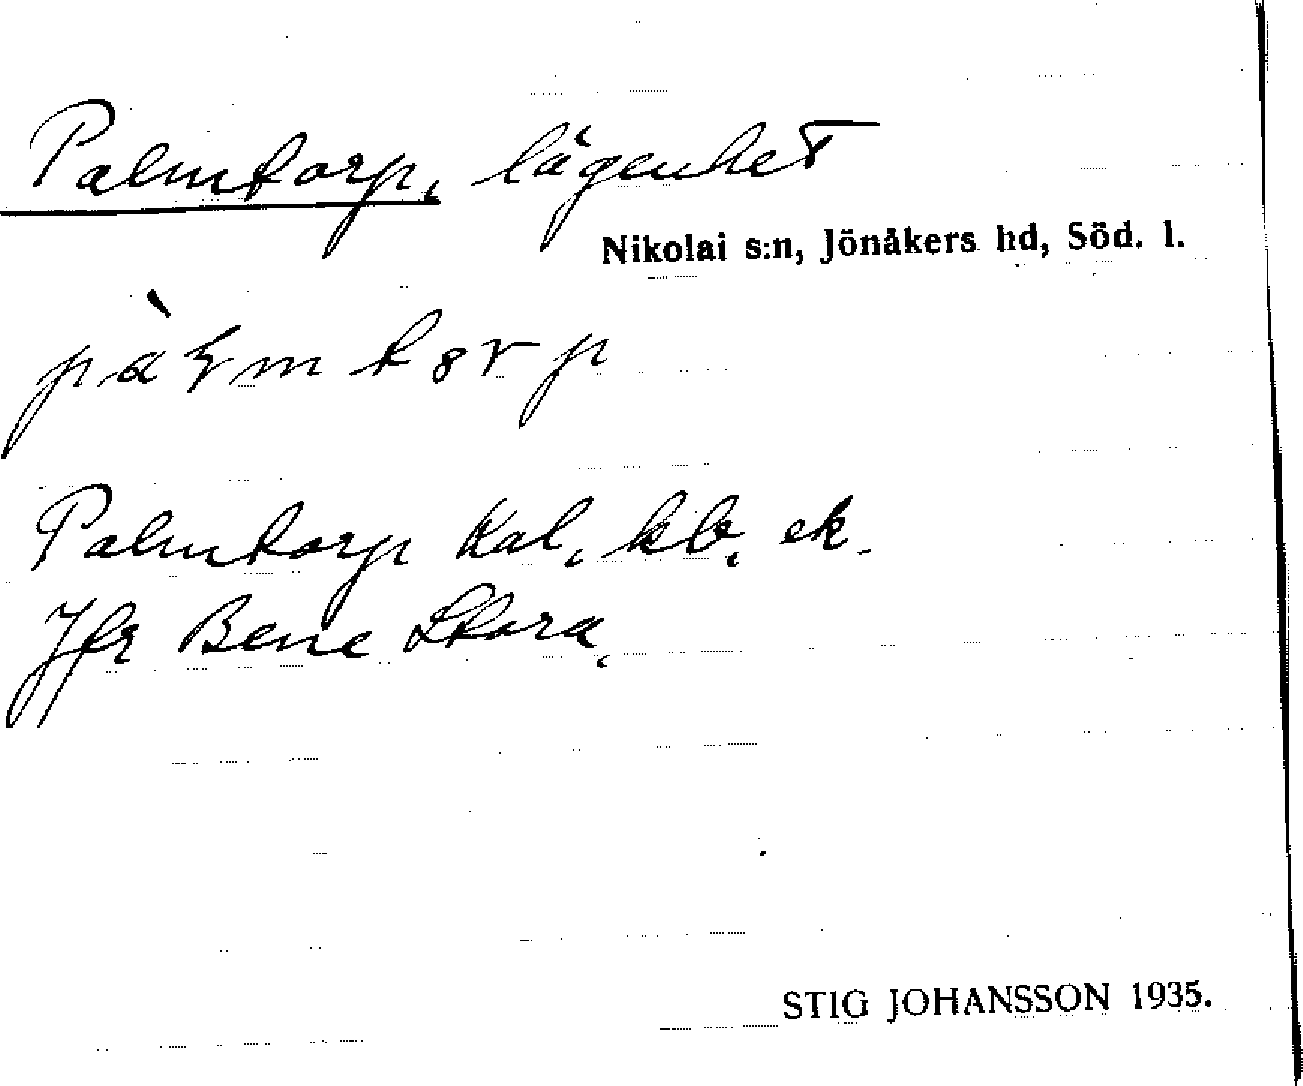 Palmtorp, lägenhet
Nikolai s:n, Jönåkers hd, Söd. l.
Palmtorp Kal, kb, ek.
Jfr Bene Stora,
STIG JOHANSSON 1935.